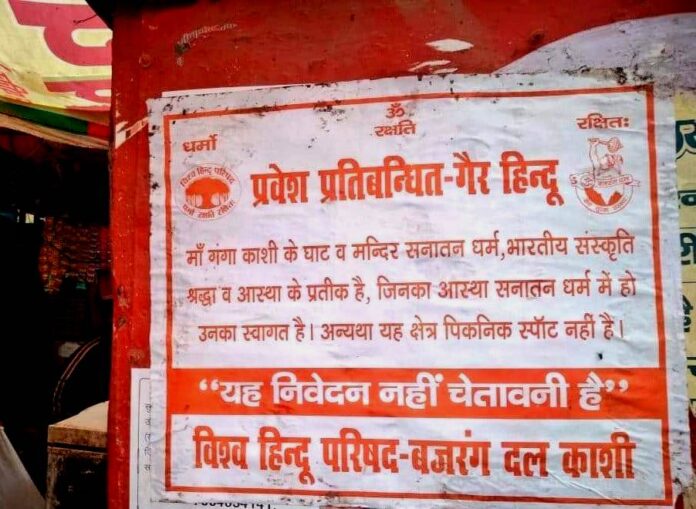 ॐ
धर्मो रक्षति रक्षितः
विश्व हिन्दू परिषद
प्रवेश प्रतिबन्धित-गैर हिन्दू
माँ गंगा काशी के घाट व मन्दिर सनातन धर्म,भारतीय संस्कृति
श्रद्धा व आस्था के प्रतीक है, जिनका आस्था सनातन धर्म में हो
उनका स्वागत है। अन्यथा यह क्षेत्र पिकनिक स्पॉट नहीं है।
“यह निवेदन नहीं चेतावनी है”
विश्व हिन्दू परिषद-बजरंग दल काशी